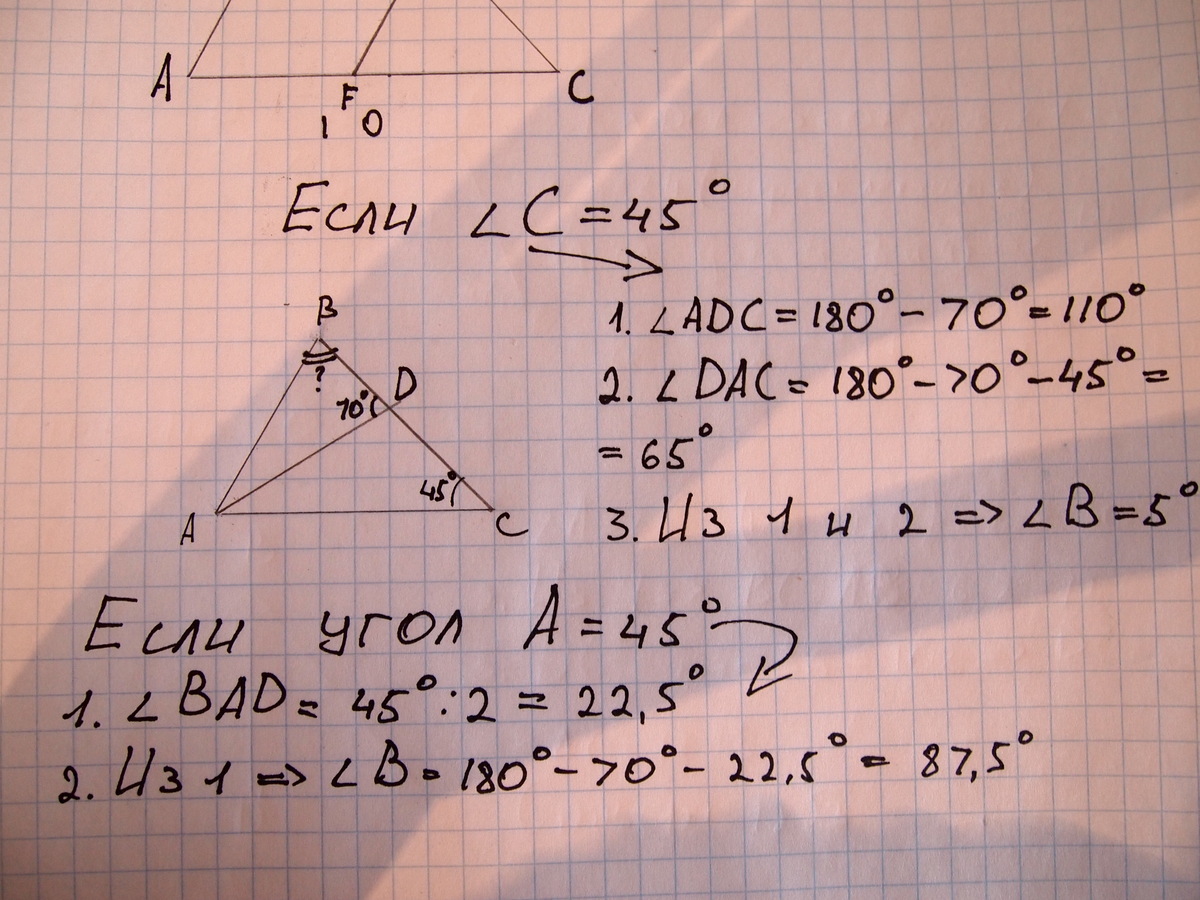 A
F
C
1 0
Если ∠C = 45°
B
?
70°
D
45°
A
C
1. ∠ADC = 180° - 70° = 110°
2. ∠DAC = 180° - 70° - 45° =
= 65°
3. Из 1 и 2 => ∠B = 5°
Если угол A = 45°
1. ∠BAD = 45° : 2 = 22,5°
2. Из 1 => ∠B = 180° - 70° - 22,5° = 87,5°